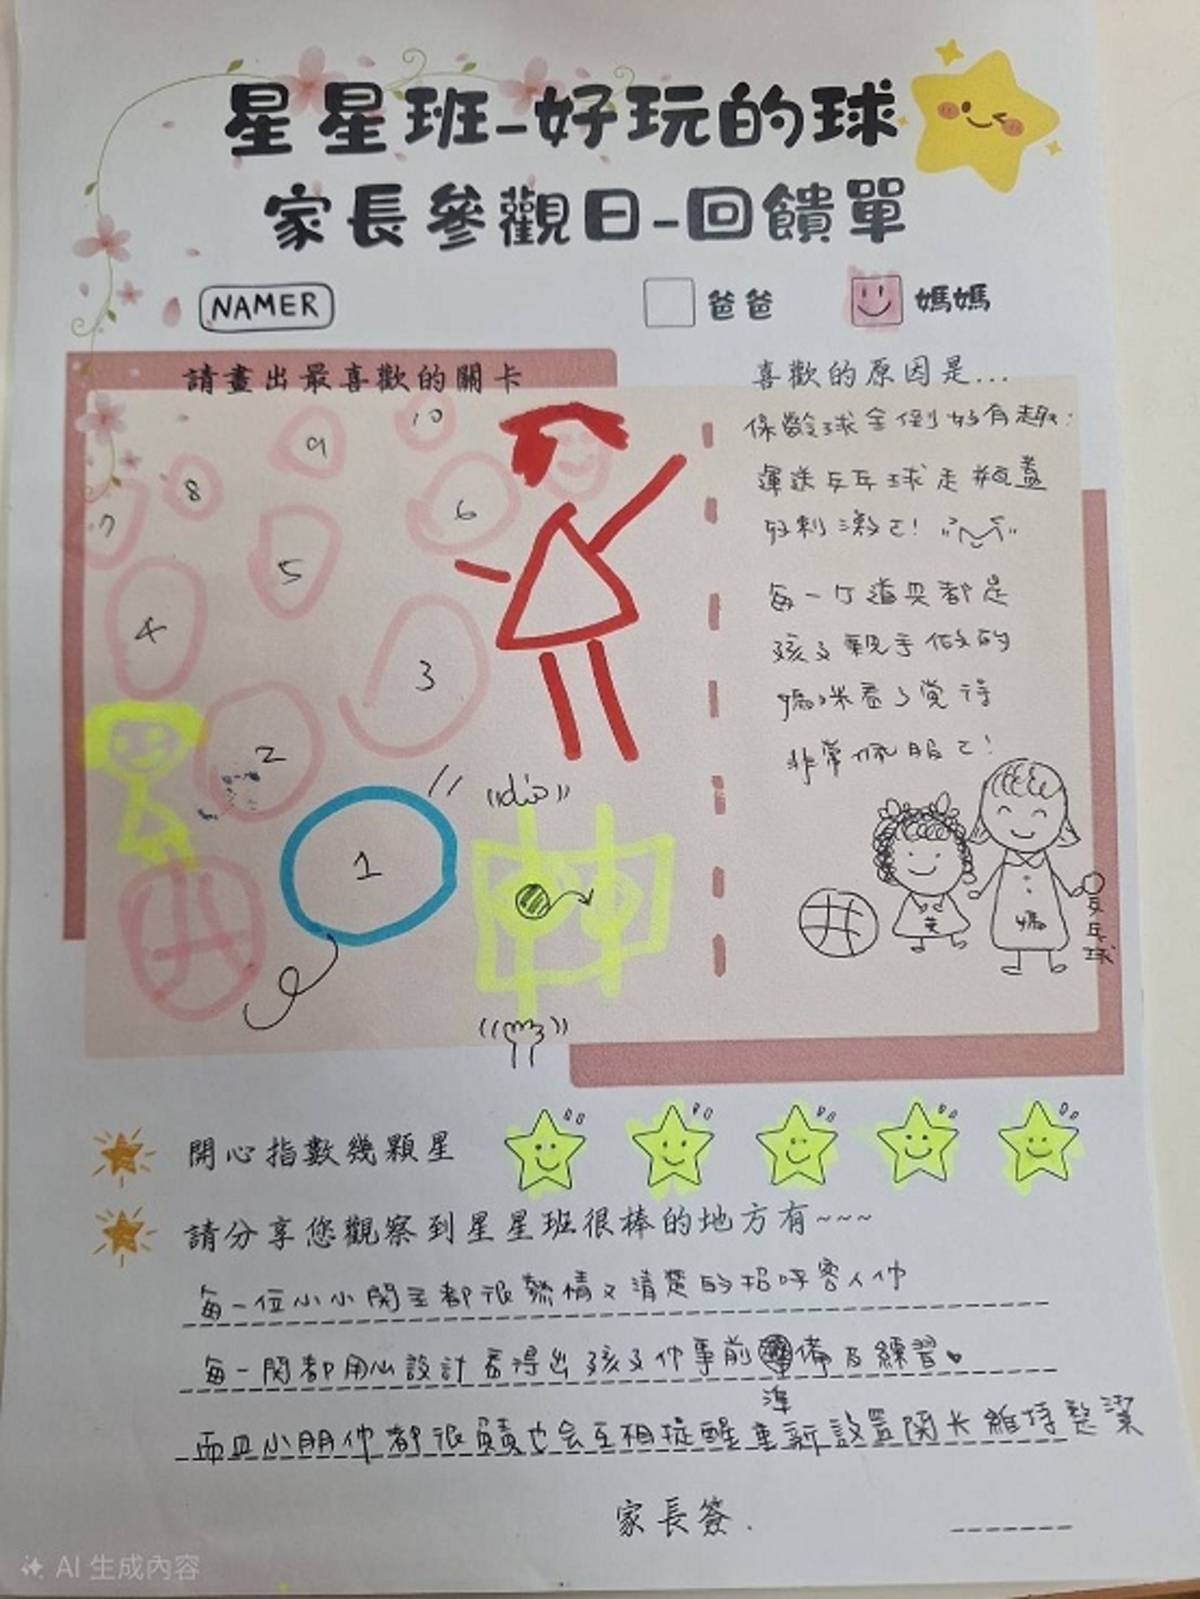 星星班-好玩的球
家長參觀日-回饋單
NAMER
爸爸
媽媽
請畫出最喜歡的關卡
喜歡的原因是...
保齡球全倒好有趣!
運送乒乓球走瓶蓋
好刺激ㄛ!
每一個道具都是
孩子親手做的
媽咪看了覺得
非常佩服ㄛ!
10
9
8
7
6
5
4
3
2
1
媽
乒乓球
開心指數幾顆星
請分享您觀察到星星班很棒的地方有~~~
每一位小小關主都很熱情又清楚的招呼客人們
每一関都用心設計看得出孩子們事前準備及練習
而且小朋们都很負責也会互相提醒重新設置関卡維持整潔
家長簽.
AI 生成內容